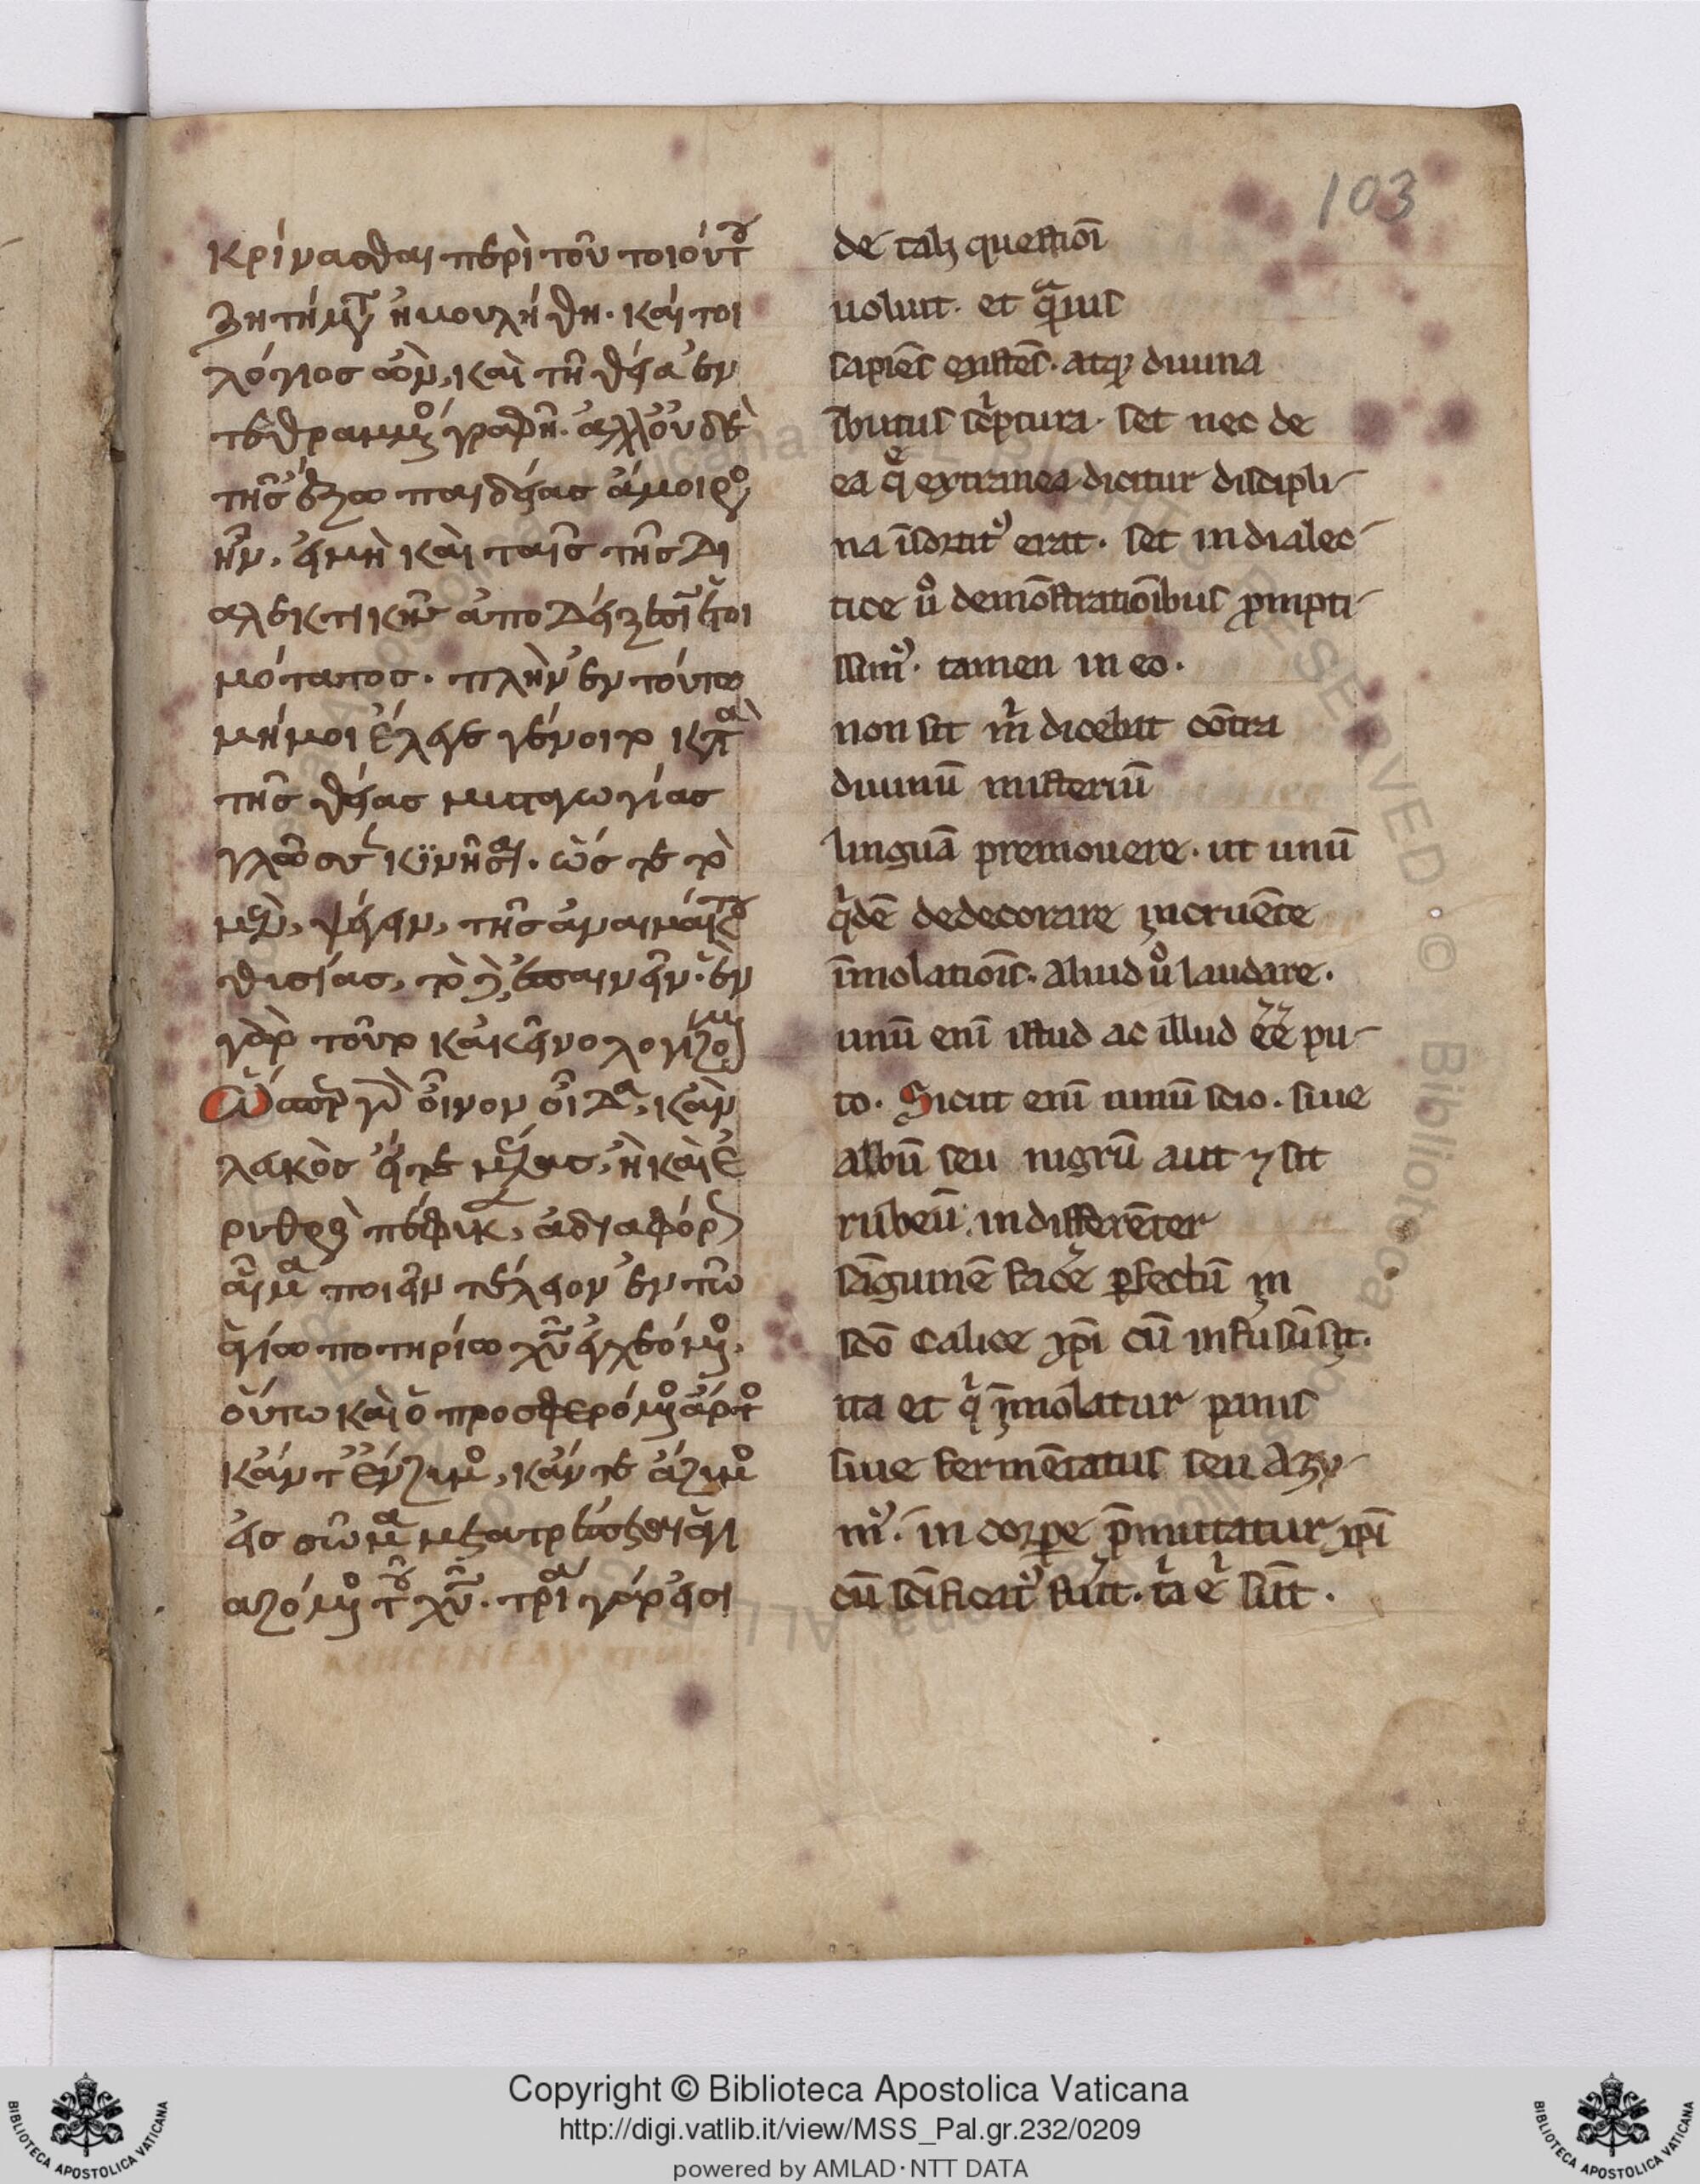 103
κρίνασθαι περὶ τοῦ τοιούτου
ζητήματος ἠβουλήθη. καίτοι
λόγιος ὢν, καὶ τῆ θεία ἐν
τεθραμμένος γραφῆ. ἀλλ' οὐδὲ
τῆς ἔξω παιδείας ἄμοιρος
ἦν. εἰ μὴ καὶ ταῖς τῆς δι
αλεκτικῆς ἀποδείξεσιν ἑτοι
μότατος. πλὴν ἐν τούτω
μή μοι ἔλεγε γένοιτο κατὰ
τῆς θείας μυσταγωγίας
γλῶσσαν κινῆσαι. ὥστε τὸ
μὲν, ψέγειν, τῆς ἀναιμάκτου
θυσίας, τὸ δὲ ἐπαινεῖν. ἓν
γὰρ τοῦτο κἀκεῖνο λογίζομαι
Ὥσπερ γὰρ οἶνον οἶδα, κἂν
λευκὸς εἴτε μέλας, ἢ καὶ ἐ
ρυθρὸς πέφυκε, ἀδιαφόρως
αἷμα ποιεῖν τέλειον ἐν τῶ
ἁγίω ποτηρίω χῦ εἰσχεόμενος.
οὕτω καὶ ὁ προσφερόμενος ἄρτος
κἄν τε ἔνζυμος, κἄν τε ἄζυμος
εἰς σῶμα μεταποιεῖσθαι ἁγι
αζόμενος τοῦ χῦ. τρία γάρ εἰσι
de tali questiōi
uoluit. et q̄muis
sapiēs existēs. atq; diuina
ībutus sc̄ptura. set nec de
ea q̄ extranea dicitur discipli-
na īsortitꝰ erat. set in dialec-
tice ū demōstratiōibus prompti-
ssimꝰ. tamen in eo.
non sit m̄ dicebat cōtra
diuinū misteriū
linguā premouere. ut unū
q̄dē dedecorare incruēte
īmolatiōis. aliud ū laudare.
unū enī istud ac illud eē pu-
to. Sicut enī uinū scio. siue
albū seu nigrū aut ⁊ sit
rubeū. indifferēter
sāguinē facē ꝑfectū in
scō calice xp̄i cū infusū sit.
ita et q̄ īmolatur panis
siue fermētatus seu azy-
mꝰ. in corpe p̄mutatur xp̄i
cū sc̄ificatꝰ fūit. t̄a ē sūt.
Copyright © Biblioteca Apostolica Vaticana
http://digi.vatlib.it/view/MSS_Pal.gr.232/0209
powered by AMLAD·NTT DATA
BIBLIOTECA APOSTOLICA VATICANA
BIBLIOTECA APOSTOLICA VATICANA